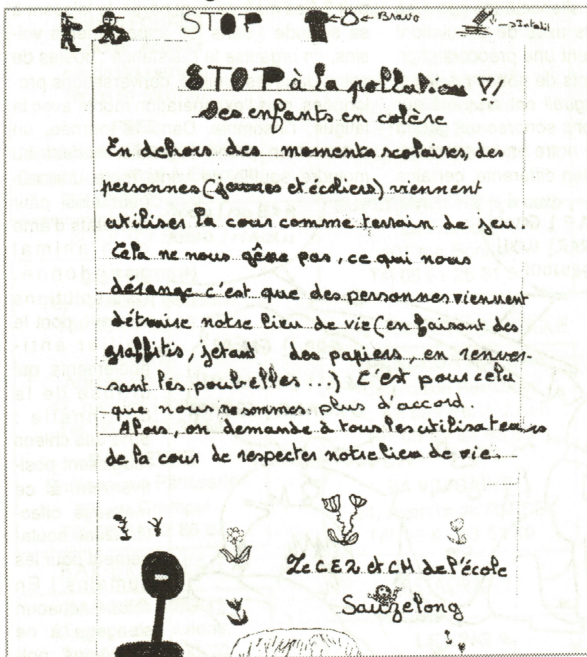 STOP Bravo
STOP à la pollution
Des enfants en colère
En dehors des moments scolaires, des
personnes (jeunes et écoliers) viennent
utiliser la cour comme terrain de jeu.
Cela ne nous gêne pas, ce qui nous
dérange c'est que des personnes viennent
détruire notre lieu de vie (en faisant des
graffitis, jetant des papiers, en renver-
sant les poubelles ...) C'est pour cela
que nous ne sommes plus d'accord
Alors, on demande à tous les utilisateurs
de la cour de respecter notre lieu de vie.
Le C.E2. et CM de l'école
Sauzelong